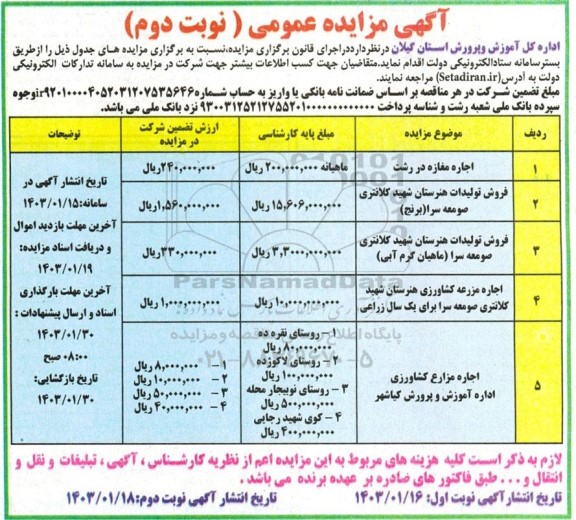 آگهی مزایده عمومی ( نوبت دوم)
اداره کل آموزش وپرورش استان گیلان درنظرداردراجرای قانون برگزاری مزایده،نسبت به برگزاری مزایده های جدول ذیل را ازطریق
بسترسامانه ستادالکترونیکی دولت اقدام نماید.متقاضیان جهت کسب اطلاعات بیشتر جهت شرکت در مزایده به سامانه تدارکات الکترونیکی
دولت به آدرس(Setadiran.ir) مراجعه نمایند.
مبلغ تضمین شرکت در هر مناقصه بر اساس ضمانت نامه بانکی یا واریز به حساب شماره
سپرده بانک ملی شعبه رشت و شناسه پرداخت نزد بانک ملی می باشد.
ردیف موضوع مزایده مبلغ پایه کارشناسی ارزش تضمین شرکت در مزایده توضیحات
۱ اجاره مغازه در رشت ماهیانه ۲۰۰,۰۰۰,۰۰۰ ریال ۲۴۰,۰۰۰,۰۰۰ریال
۲ فروش تولیدات هنرستان شهید کلانتری
صومعه سرا(برنج) ۱۵,۶۰۶,۰۰۰,۰۰۰ ریال ۱,۵۶۰,۰۰۰,۰۰۰ریال
۳ فروش تولیدات هنرستان شهید کلانتری
صومعه سرا (ماهیان گرم آبی) ۳,۳۰۰۰,۰۰۰,۰۰۰ ریال ۳۳۰,۰۰۰,۰۰۰ریال
۴ اجاره مزرعه کشاورزی هنرستان شهید
کلانتری صومعه سرا برای یک سال زراعی ۱۰,۰۰۰,۰۰۰,۰۰۰ ریال ۱,۰۰۰,۰۰۰,۰۰۰ ریال
۵ اجاره مزارع کشاورزی
اداره آموزش و پرورش کیاشهر
۱ – روستای نقره ده
۸۰,۰۰۰,۰۰۰ ریال
۲– روستای لاکوزده
۱۰۰,۰۰۰,۰۰۰ ریال
۳ – روستای نوبیجار محله
۵۰۰,۰۰۰,۰۰۰ ریال
۴– کوی شهید رجایی
۴۰۰,۰۰۰,۰۰۰ ریال
۱– ۸,۰۰۰,۰۰۰ ریال
۲– ۱۰,۰۰۰,۰۰۰ ریال
۳– ۵۰,۰۰۰,۰۰۰ ریال
۴– ۴۰,۰۰۰,۰۰۰ ریال
تاریخ انتشار آگهی در
سامانه:۱۴۰۳/۰۱/۱۵
آخرین مهلت بازدید اموال
و دریافت اسناد مزایده:
۱۴۰۳/۰۱/۱۹
آخرین مهلت بارگذاری
اسناد و ارسال پیشنهادات :
۱۴۰۳/۰۱/۳۰
۰۸:۰۰ صبح
تاریخ بازگشایی:
۱۴۰۳/۰۱/۳۰
ParsNamadData
پایگاه اطلاع رسانی مناقصه و مزایده
لازم به ذکر است کلیه هزینه های مربوط به این مزایده اعم از نظریه کارشناس ، آگهی ، تبلیغات و نقل و
انتقال و . . . طبق فاکتور های صادره بر عهده برنده می باشد .
تاریخ انتشارآگهی نوبت اول: ۱۴۰۳/۰۱/۱۶ تاریخ انتشار آگهی نوبت دوم:۱۴۰۳/۰۱/۱۸